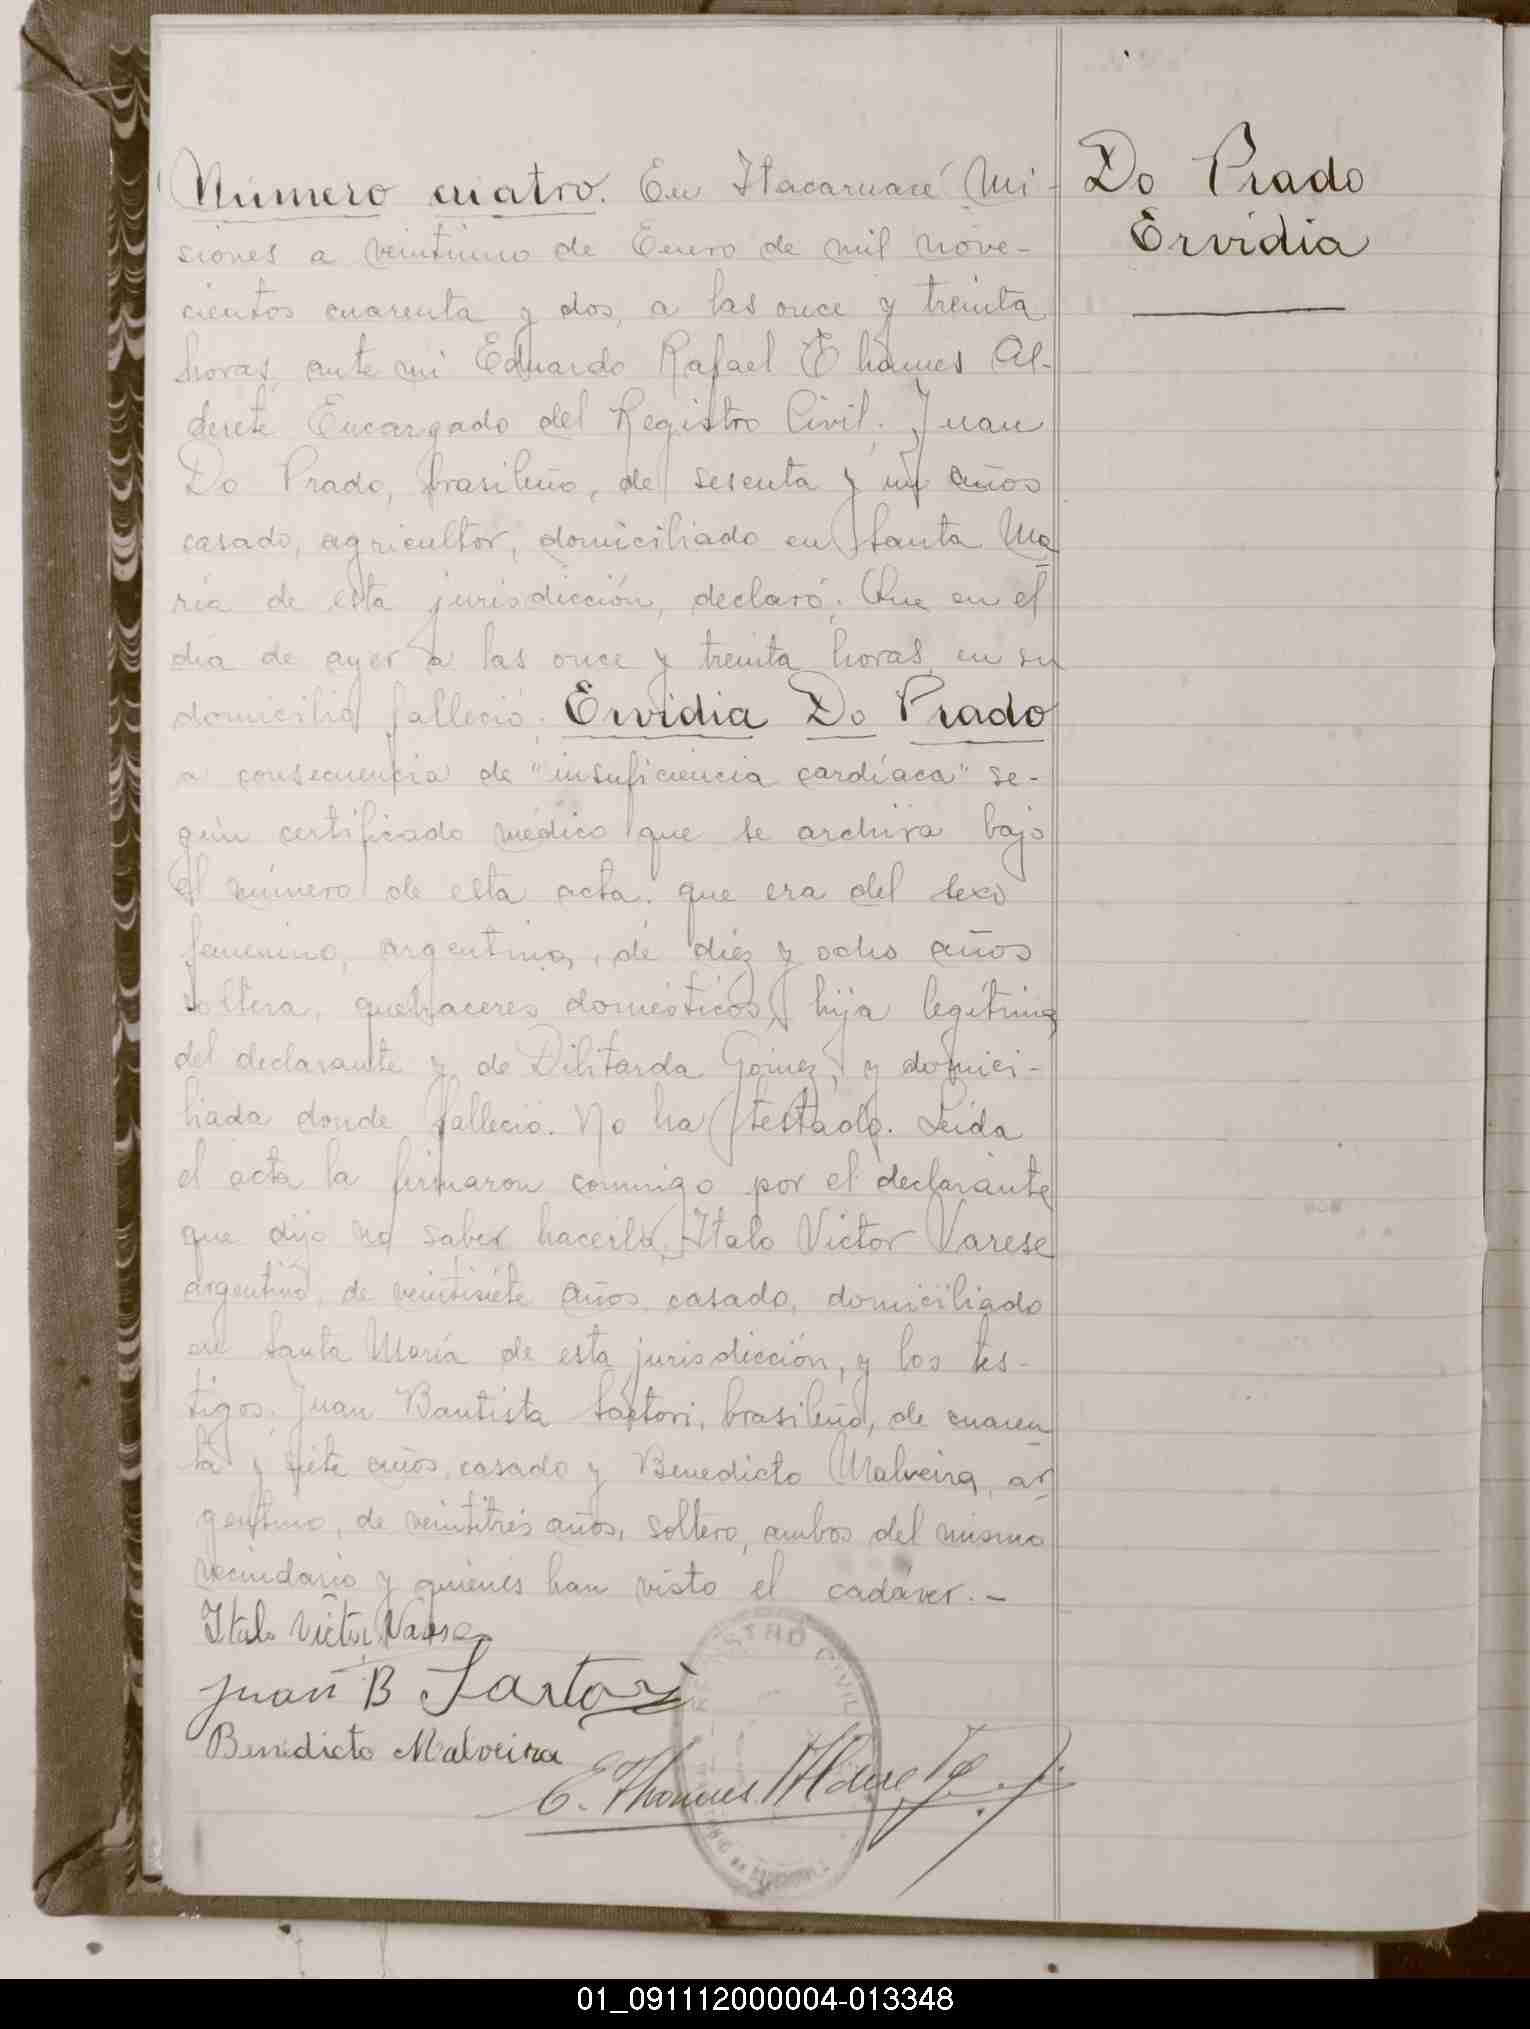 Número cuatro. En Itacaruaré Mi-
siones a veintiuno de Enero de mil nove-
cientos cuarenta y dos, a las once y treinta
horas, ante mi Eduardo Rafael Thames Al-
derete Encargado del Registro Civil; Juan
Do Prado, brasileño, de sesenta y un años
casado, agricultor, domiciliado en Santa Ma
ría de esta jurisdicción, declaró: Que en el
día de ayer a las once y treinta horas, en su
domicilio falleció: Ervidia Do Prado
a consecuencia de "insuficiencia cardíaca" se-
gún certificado médico que se archiva bajo
el número de esta acta; que era del sexo
femenino, argentina, de diez y ocho años
soltera, quehaceres domésticos, hija legítima
del declarante y de Dilitarda Gomez, y domici-
liada donde falleció. No ha testado. Leída
el acta la firmaron conmigo por el declarante
que dijo no saber hacerlo, Italo Victor Varese
argentino, de veintisiete años, casado, domiciliado
en Santa María de esta jurisdicción, y los tes-
tigos: Juan Bautista Sartori, brasileño, de cuaren
ta y siete años, casado y Benedicto Malveira, ar
gentino, de veintitrés años, soltero, ambos del mismo
vecindario y quienes han visto el cadáver.-
Italo Victor Varese
Juan B Sartori
Benedicto Malveira
E. Thames Alderete
REGISTRO CIVIL
Do Prado
Ervidia
01_091112000004-013348